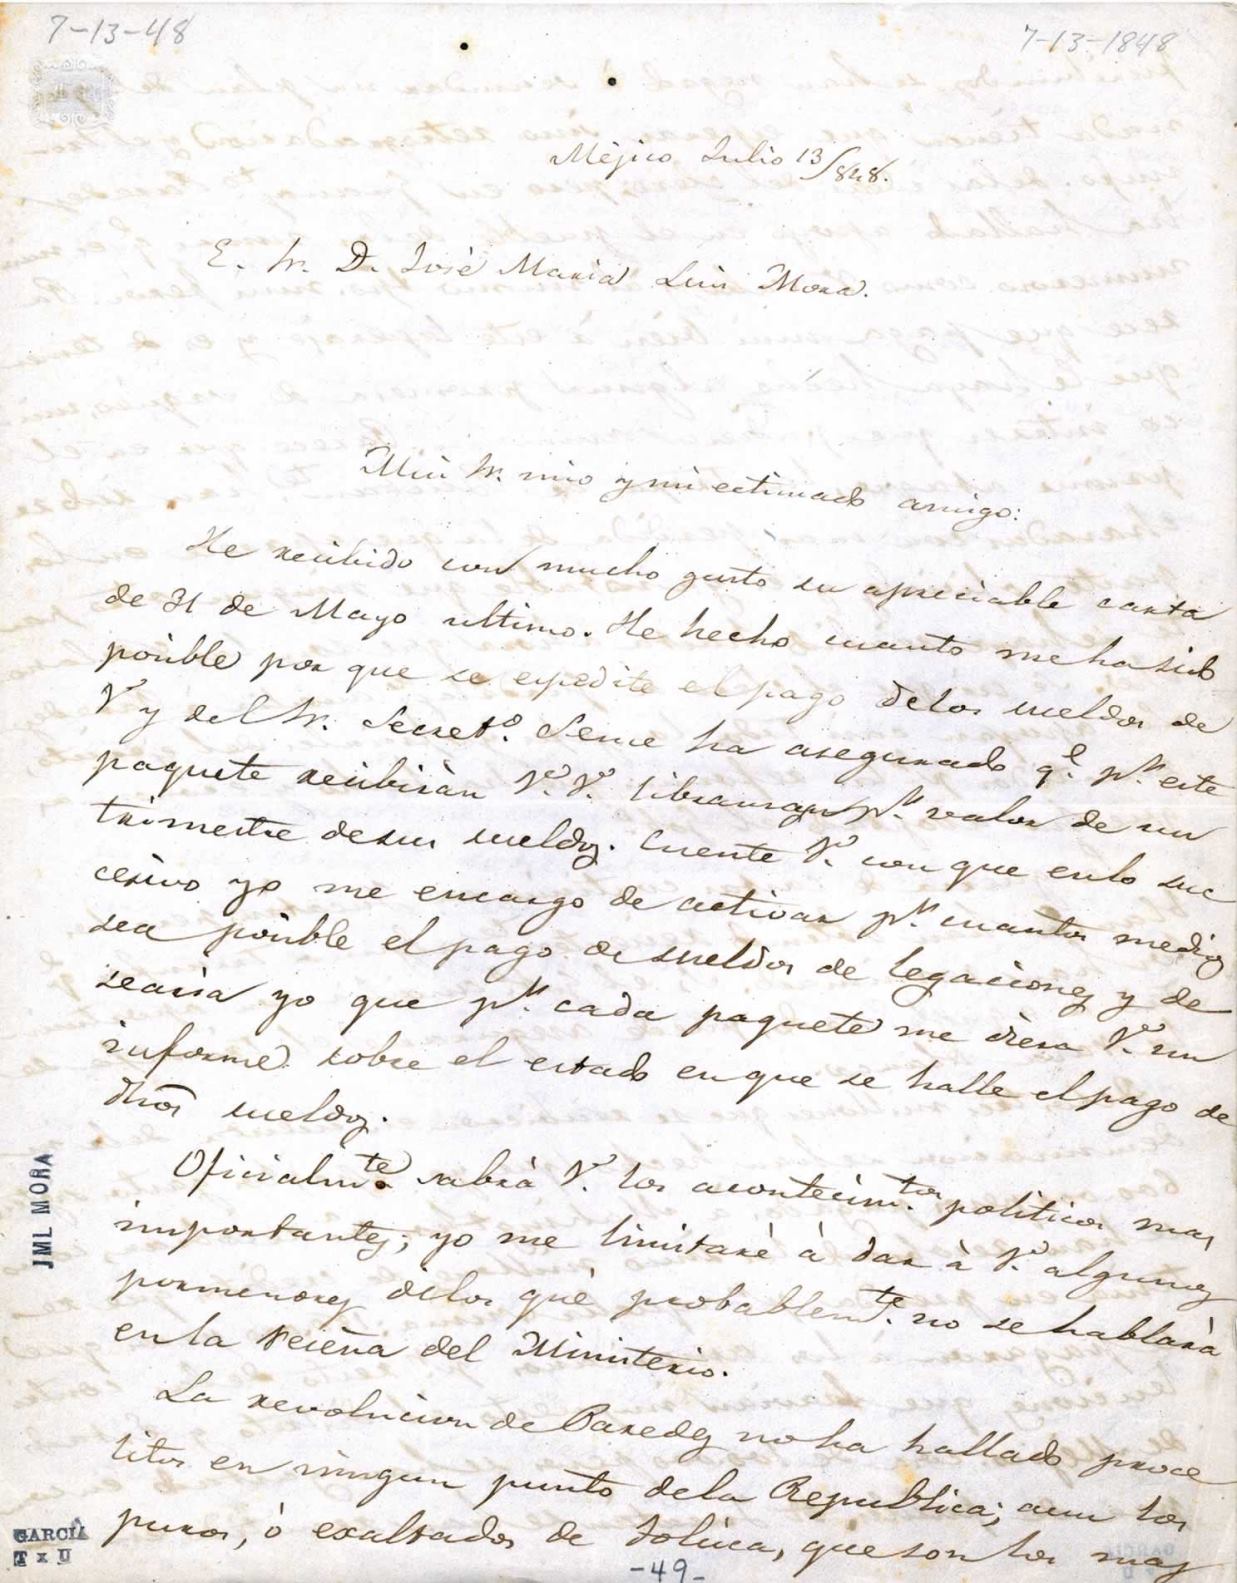 7-13-48
7-13-1848
Méjico Julio 13/848.
E. Sr. D. José Maria Luis Mora.
Mui Sr. mio y mi estimado amigo:
He recibido con mucho gusto su apreciable carta
de 31 de Mayo ultimo. He hecho cuanto me ha sido
posible por que se espedite el pago delos sueldos de
V. y del Sr. Secretº. Seme ha asegurado q.e p.r este
paquete recibirán V.V. libranzas p.r valor de un
trimestre desus sueldos. Cuente V. con que enlo suc
cesivo yo me encargo de activar p.r cuantos medios
sea posible el pago de sueldos de legaciones y de
searia yo que p.r cada paquete me diera V. un
informe sobre el estado enque se halle el pago de
dhos sueldos.
Oficialm.te sabrá V. los acontecim.tos politicos mas
importantes; yo me limitaré à dar à V. algunos
pormenores delos qué probablem.te no se hablará
en la reseña del Ministerio.
La revolucion de Paredes no ha hallado proce
litos en ningun punto dela Republica; aun los
puros, ó exaltados de Toluca, que son los mas
JML MORA
GARCIA
T x U
-49-